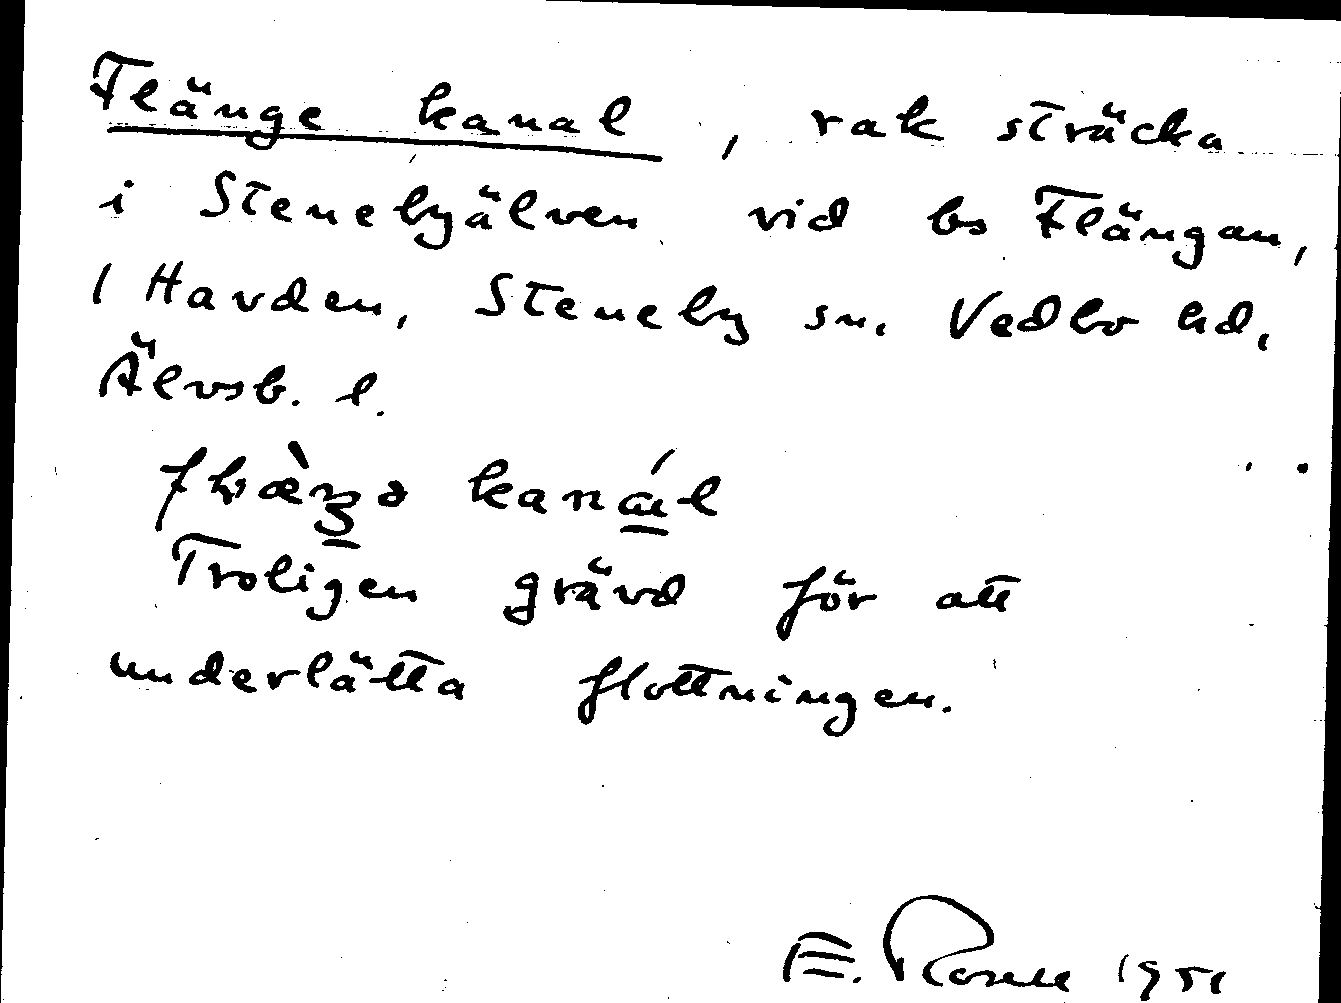 Flänge kanal, rak sträcka
i Stenebyälven vid bs Flängan,
1 Havden, Steneby sn. Vedbo hd.
Älvsb. l.
kanal
Troligen grävd för att
underlätta flottningen.
E. 1951